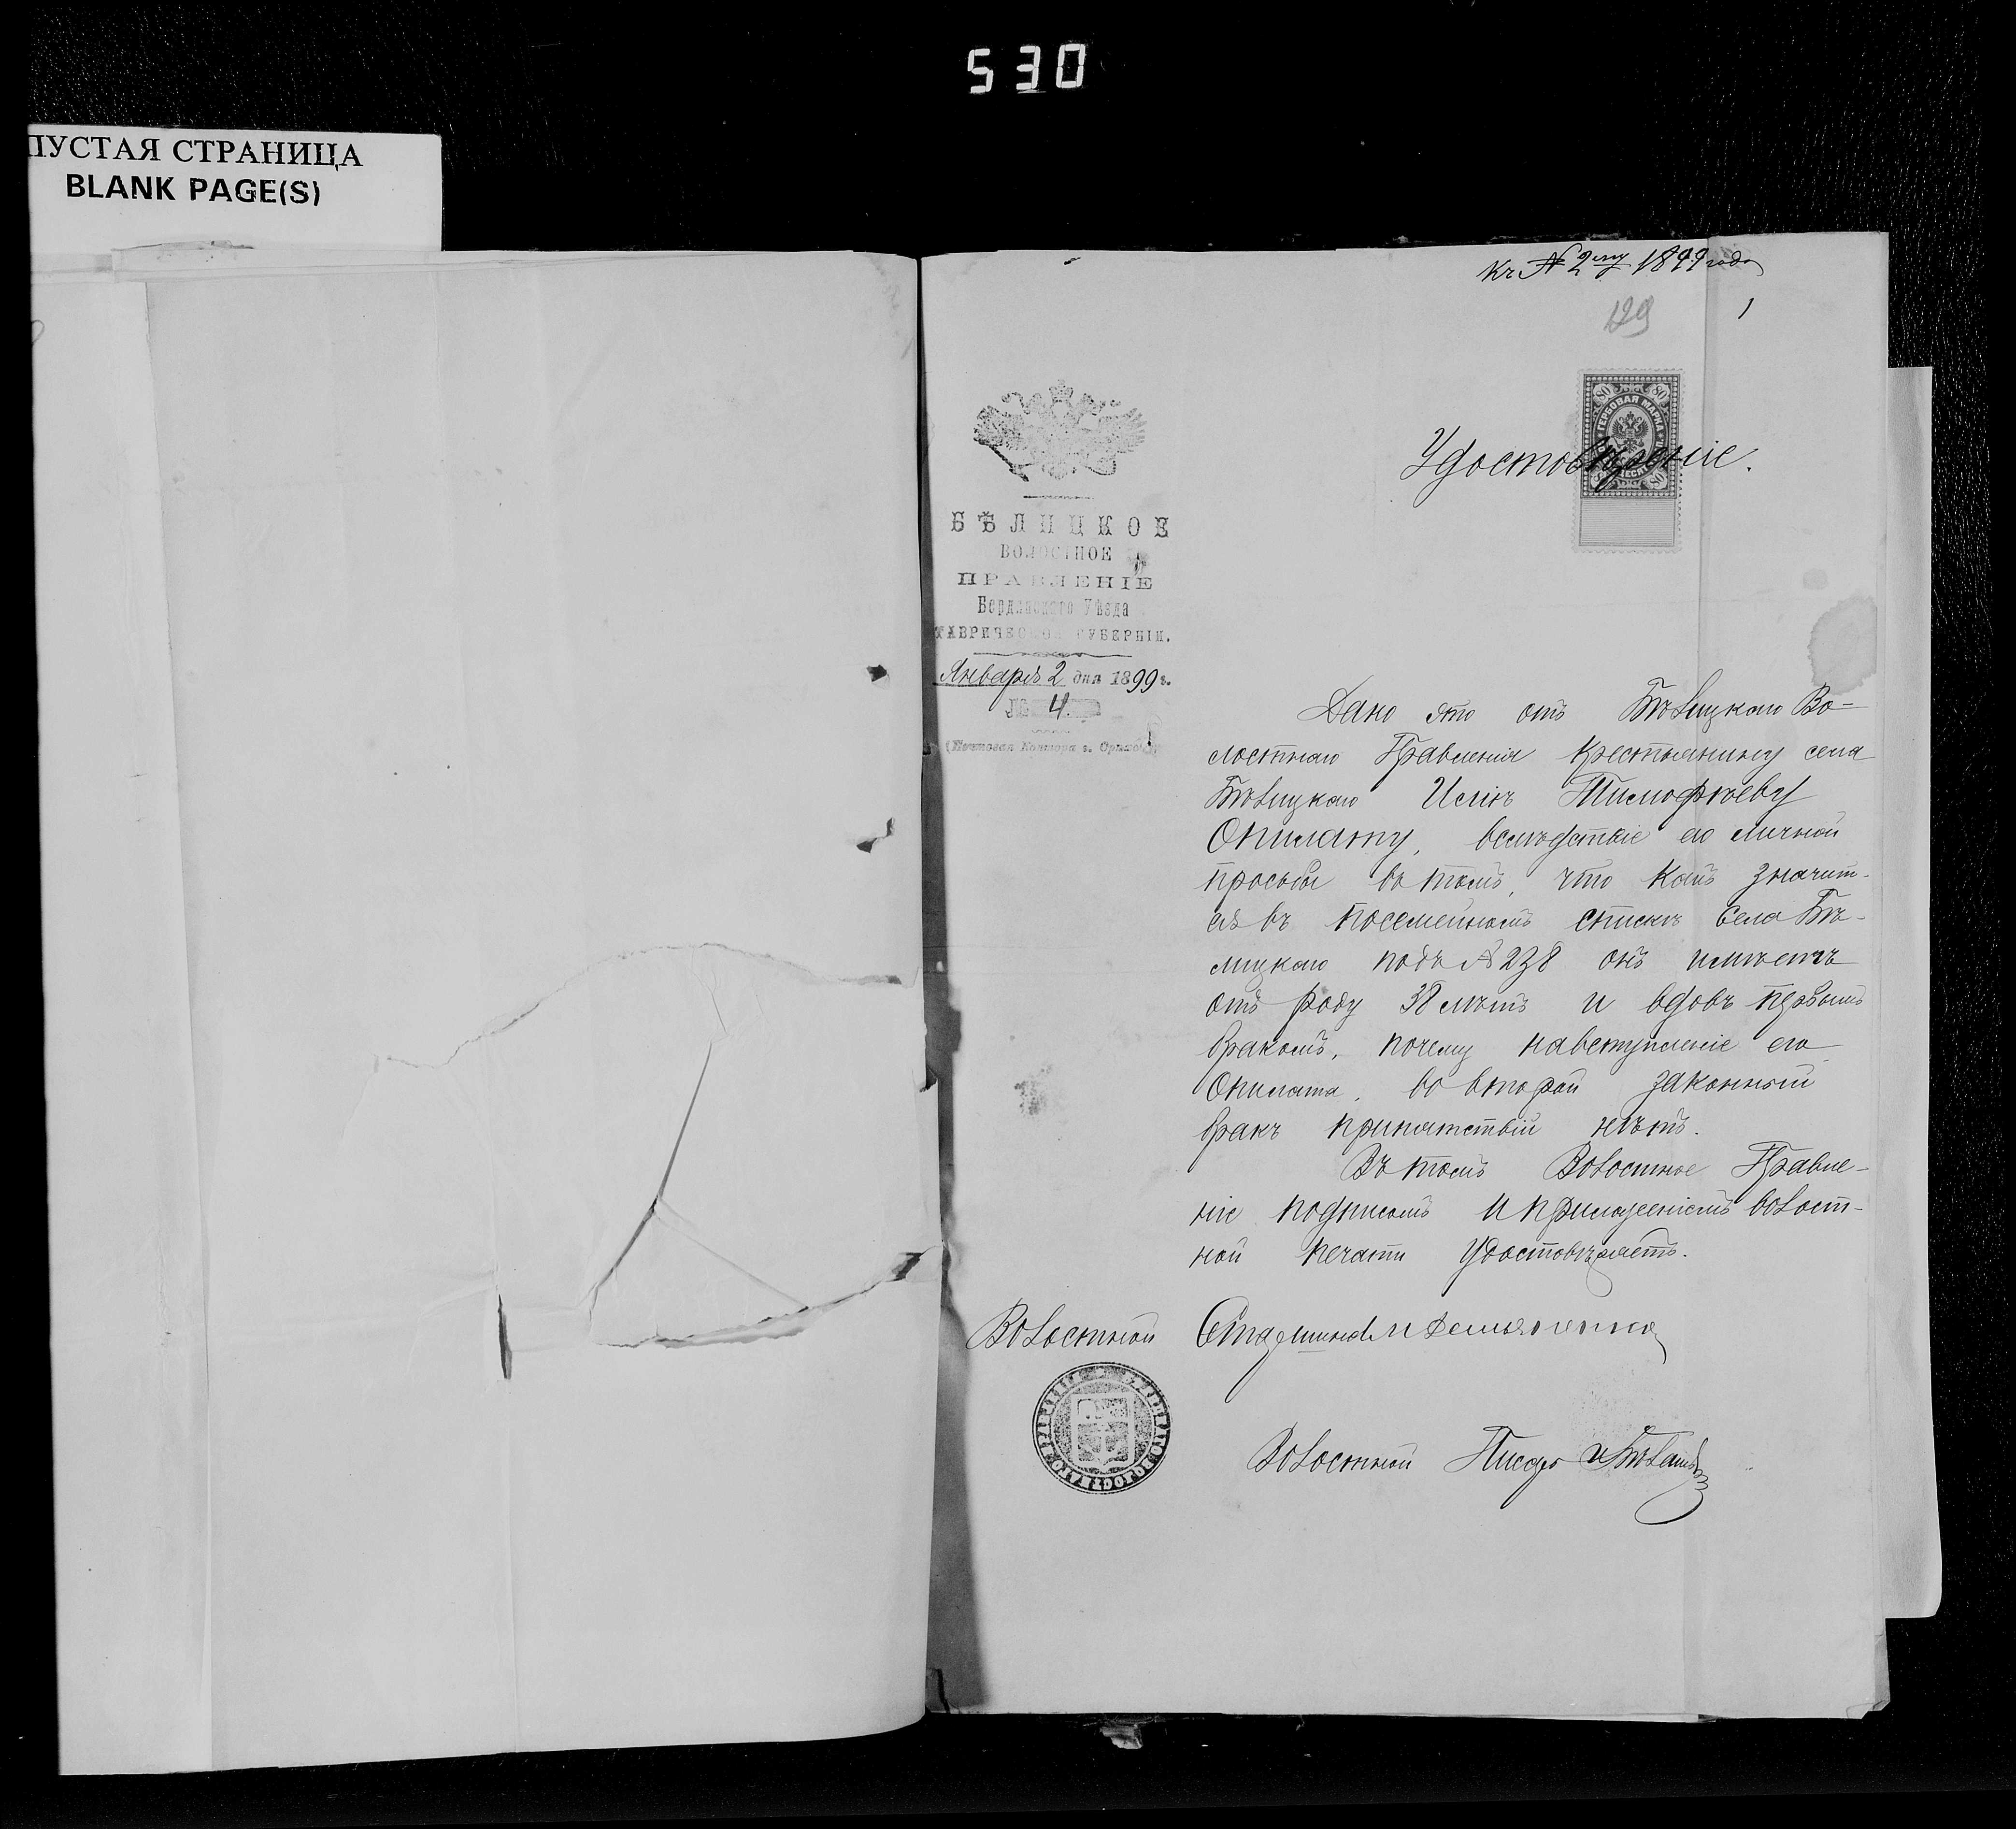 530
ПУСТАЯ СТРАНИЦА
BLANK PAGE(S)
къ № 2му 1899 года
129
1
80 80
ГЕРБОВАЯ МАРКА
80
Удостовѣреніе.
БѢЛИЦКОЕ
ВОЛОСТНОЕ
ПРАВЛЕНІЕ
Бердянскаго Уѣзда
ТАВРИЧЕСКОЙ ГУБЕРНІИ.
Января 2 дня 1899 г.
№ 4.
(Почтовая Контора г. Орѣховъ)
Дано это отъ Бѣлицкаго Во-
лостнаго Правленія крестьянину села
Бѣлицкаго Исаіи Тимофѣеву
Опилату, вслѣдствіе его личной
просьбы въ томъ, что какъ значит-
ся въ посемейномъ спискѣ села Бѣ-
лицкаго подъ № 238 онъ имѣетъ
отъ роду 38 лѣтъ и вдовъ первымъ
бракомъ, почему на вступленіе его
Опилата, во второй законный
бракъ препятствій нѣтъ.
Въ томъ Волостное Правле-
ніе подписомъ и приложеніемъ волост-
ной печати удостовѣряетъ.
Волостной Старшина
Волостной Писарь